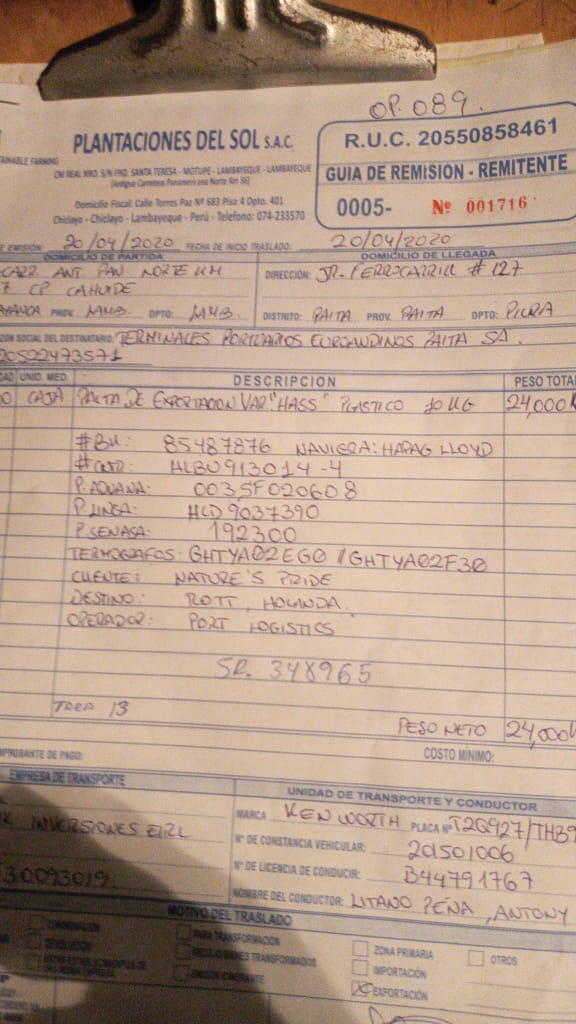 OP. 089.
PLANTACIONES DEL SOL S.A.C.
R.U.C. 20550858461
CM REAL NRO. S/N FND. SANTA TERESA - MOTUPE - LAMBAYEQUE - LAMBAYEQUE
(Antigua Carretera Panamericana Norte Km 56)
GUIA DE REMISION - REMITENTE
Domicilio Fiscal: Calle Torres Paz Nº 683 Piso 4 Dpto. 401
Chiclayo - Chiclayo - Lambayeque - Perú - Telefono: 074-233570
0005- Nº 001716
EMISIÓN: 20/04/2020 FECHA DE INICIO TRASLADO: 20/04/2020
DOMICILIO DE PARTIDA DOMICILIO DE LLEGADA
CARR. ANT. PAN. NORTE KM DIRECCIÓN: JR. FERROCARRIL # 127
7 CP CAHUIDE
PROV. LAMB. DPTO: LAMB. DISTRITO: PAITA PROV. PAITA DPTO: PIURA
SOCIAL DEL DESTINATARIO: TERMINALES PORTUARIOS EUROANDINOS PAITA SA.
20522473571
UNID. MED. DESCRIPCION PESO TOTAL
CAJA PALTA DE EXPORTACION VAR. "HASS" PLASTICO 10 KG 24,000
#BK: 85487876 NAVIERA: HAPAG LLOYD
#CNTR: HLBU913014-4
P. ADUANA: 003SF020608
P. LINEA: HLD9037390
P. SENASA: 192300
TERMOGRAFOS: GHTYA02EG0 // GHTYA02F30
CLIENTE: NATURE'S PRIDE
DESTINO: ROTT, HOLANDA.
OPERADOR: PORT LOGISTICS
SR. 348965
TARA 13
PESO NETO 24,000
COMPROBANTE DE PAGO: COSTO MÍNIMO:
EMPRESA DE TRANSPORTE UNIDAD DE TRANSPORTE Y CONDUCTOR
MARCA KENWORTH PLACA Nº T2Q927/THB9
INVERSIONES EIRL
Nº DE CONSTANCIA VEHICULAR: 201501006
Nº DE LICENCIA DE CONDUCIR: B44791767
30093019
NOMBRE DEL CONDUCTOR: LITANO PEÑA, ANTONY
MOTIVO DEL TRASLADO
CONSIGNACIÓN PARA TRANSFORMACIÓN ZONA PRIMARIA OTROS
DEVOLUCIÓN RECOJO BIENES TRANSFORMADOS IMPORTACIÓN
ENTRE ESTABLECIMIENTOS DE UNA MISMA EMPRESA EMISOR ITINERANTE EXPORTACIÓN